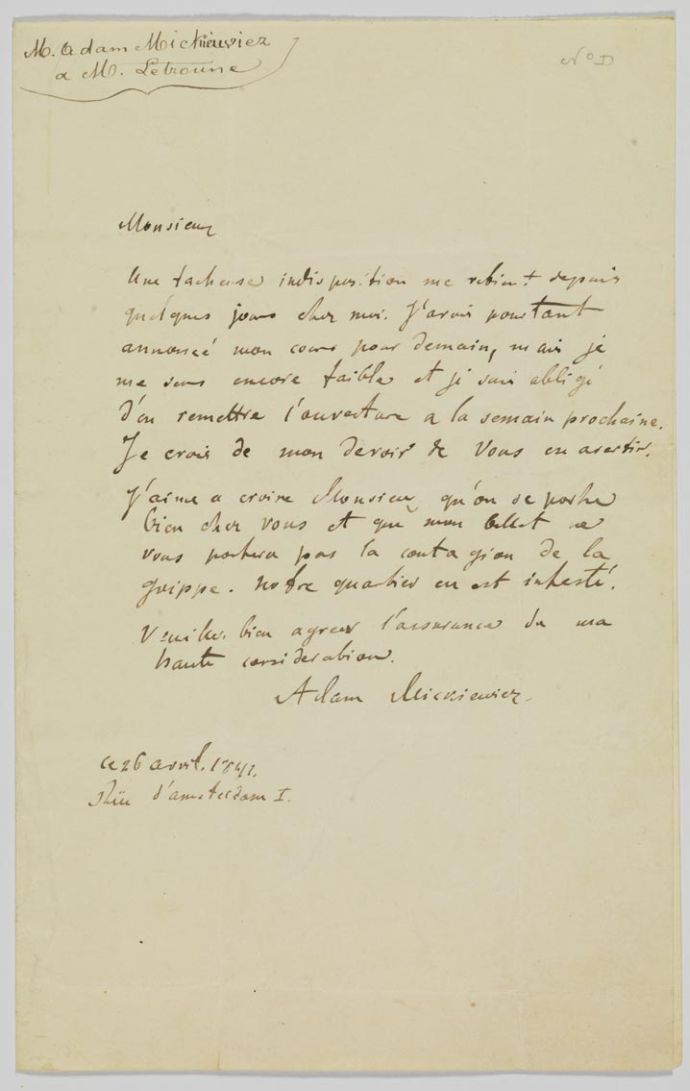 M. Adam Mickiewicz
a M. Letronne
N° D
Monsieur
Une facheuse indisposition me retient depuis
quelques jours chez moi. J'avais pourtant
annoncé mon cours pour demain, mais je
me sens encore faible et je suis obligé
d'en remettre l'ouverture a la semain prochaine.
Je crois de mon devoir de Vous en avertir.
J'aime a croire Monsieur qu'on se porte
bien chez vous et que mon billet ne
vous portera pas la contagion de la
grippe. Notre quartier en est infesté.
Veuillez bien agreer l'assurance de ma
haute consideration.
Adam Mickiewicz.
ce 26 avril. 1841.
d'amsterdam I.